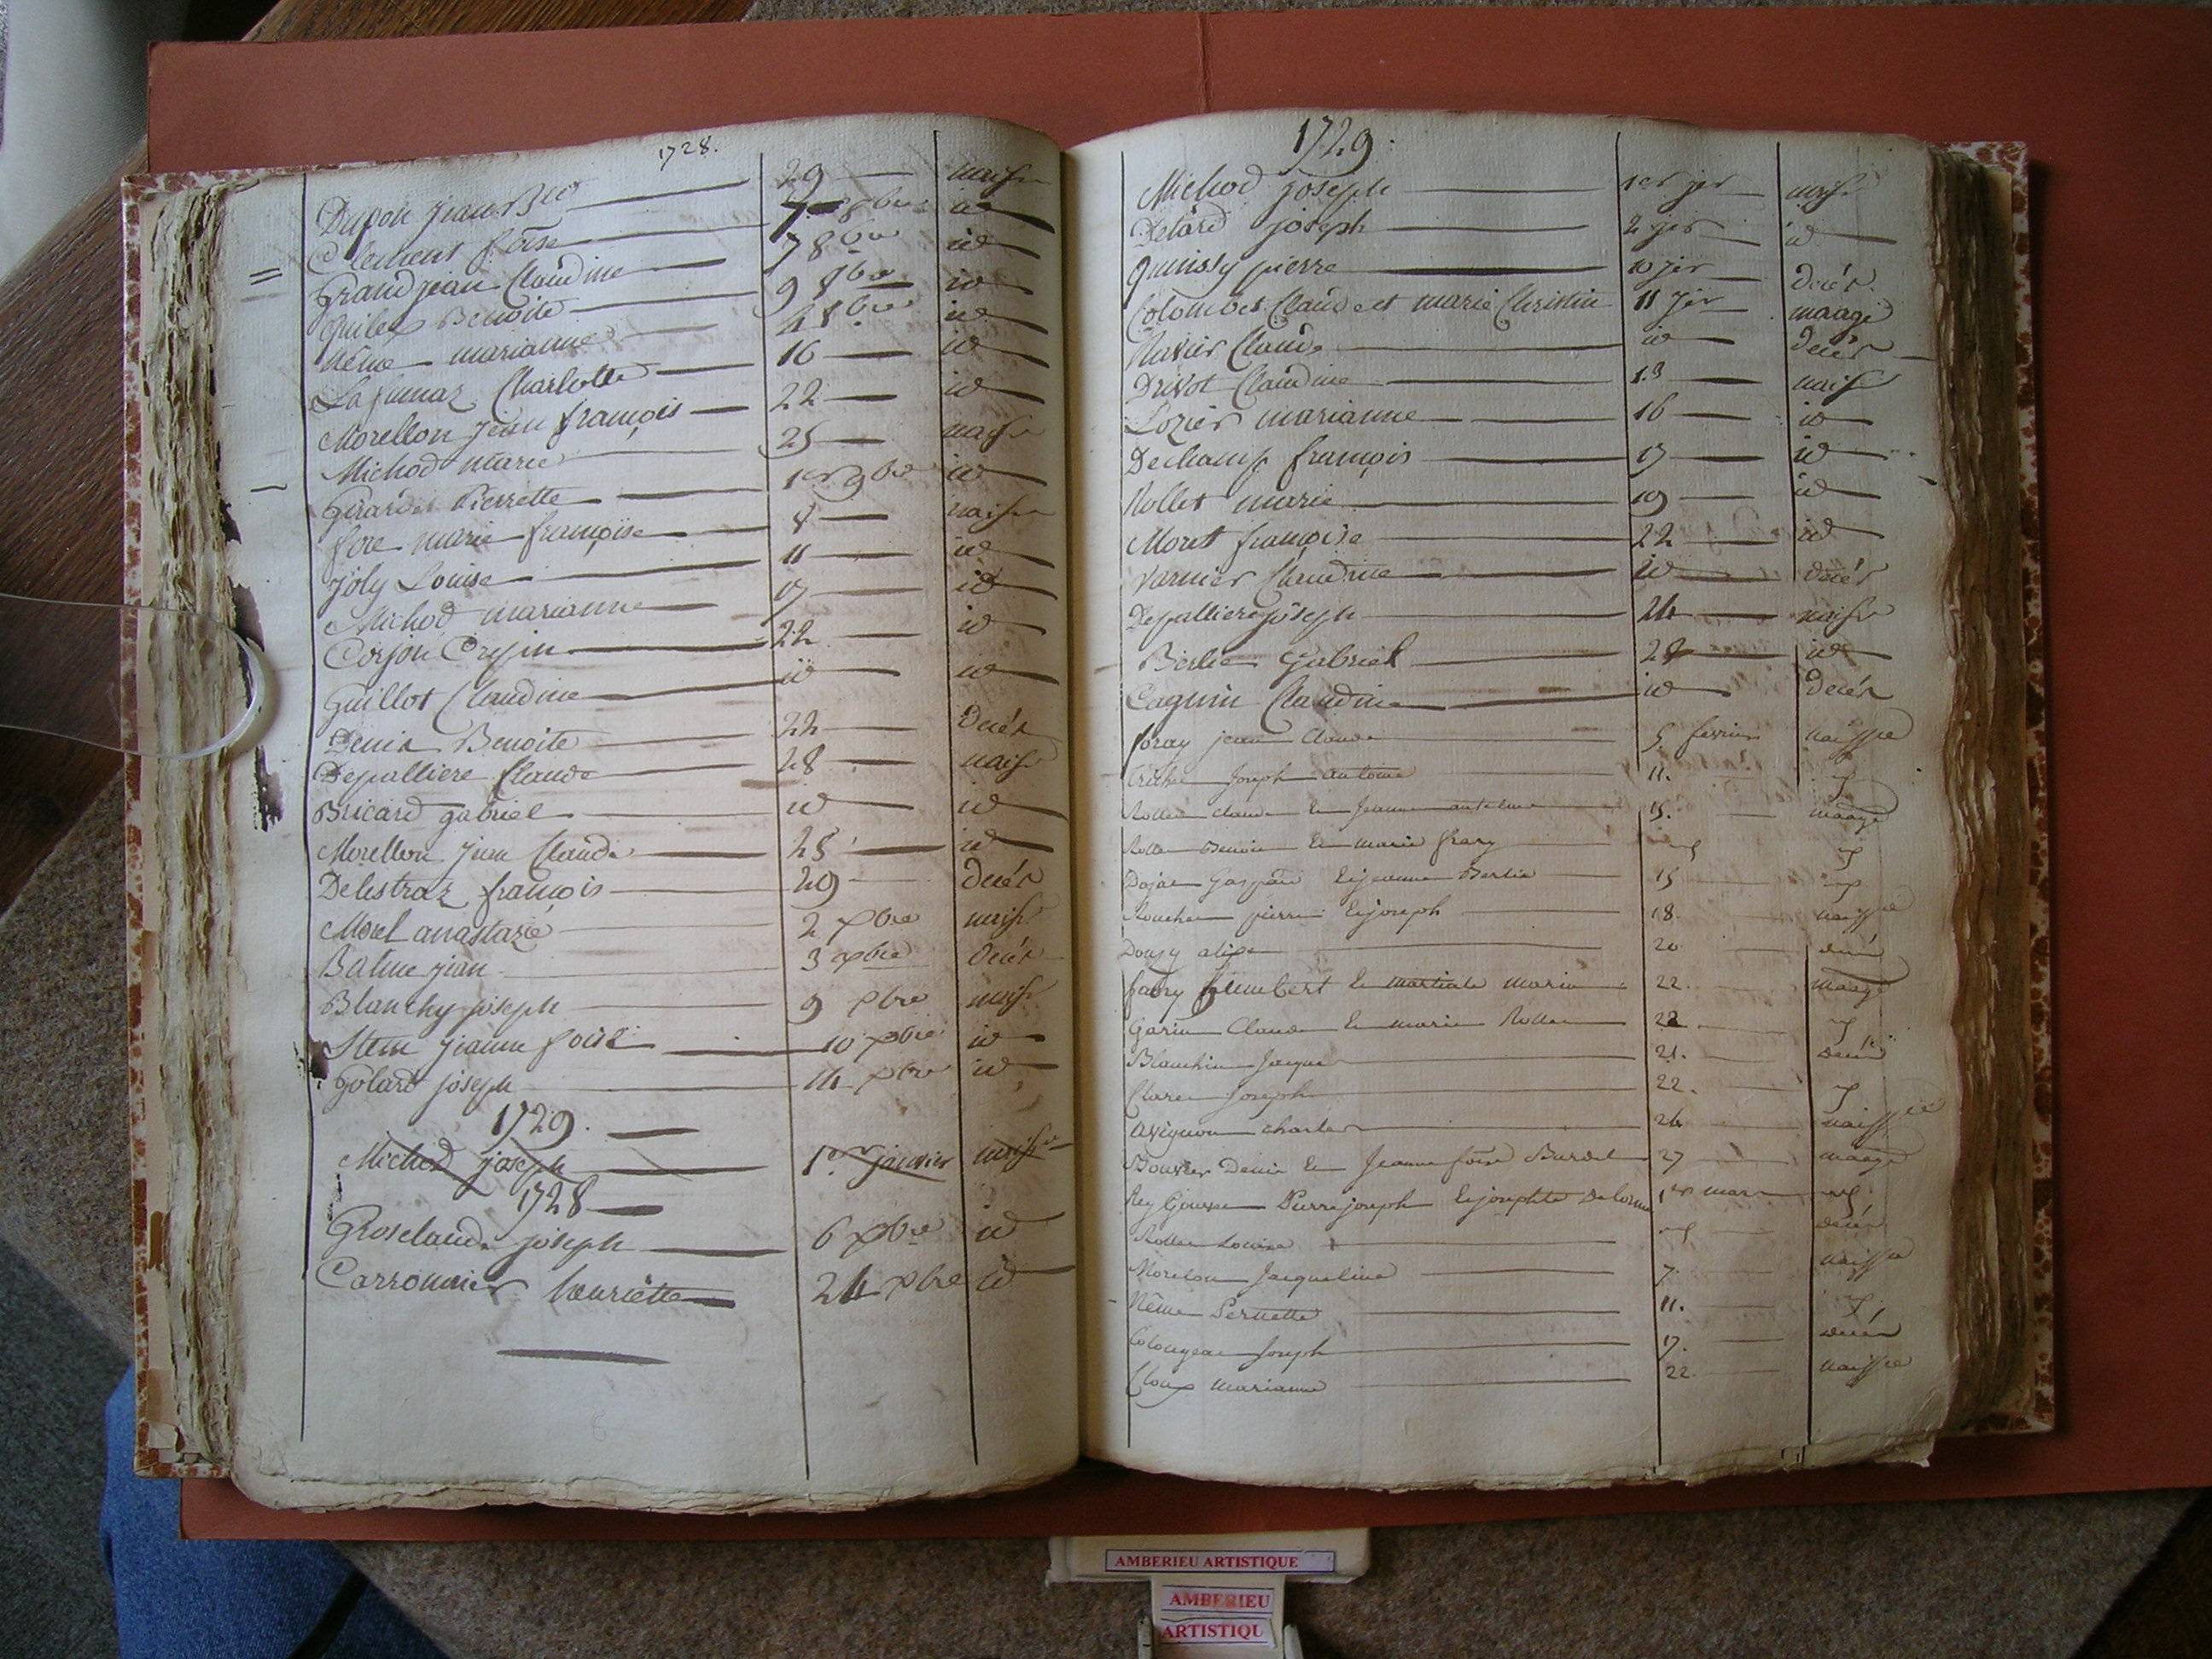 1728.
Dupon Jean Bte 29 naisse
Clement foise 7 8bre id
Grand jean Claudine 7 8bre id
Benoite 9 8bre id
Néme marianne id
Charlotte 16 id
Morellon jean françois 22 id
Michod marie 25 naisse
Girardet Pierrette 1er 9bre id
fore marie françoise 8 naisse
joly Louise 11 id
Michod marianne 17 id
Corjon Crepin 22 id
Guillot Claudine id id
Denis Benoite 22 décés
Depalliere Claude 28 naiss
Bricard gabriel id id
Morellon jean Claude 28 id
Delestraz françois 29 décés
Morel anastazie 2 xbre naiss
Balme jean 3 xbre décés
Blanchy joseph 9 xbre naiss
jeanne foise 10 xbre id
Golard joseph 14 xbre id
1729.
Michod joseph 1er janvier naisse
1728
Groselaude joseph 6 xbre id
Carronnier henriette 24 xbre id
1729.
Michod joseph 1er jer naisse
Detard joseph 2 jer id
Quinssy pierre 10 jer décés
Colombet Claude et marie Christin 11 jer maage
Ravier Claude id décés
Drivot Claudine 13 naiss
Lozier marianne 16 id
Dechamp françois 17 id
Rollet marie 19 id
Moret françoise 22 id
Varnier Claudine id décés
Depalliere joseph 24 naisse
Berlie Gabriel 28 id
Caguin Claudine id décés
foray jean Claude 5. fevrier naissce
joseph antoine 11.
Rollet claude et jeanne 15. maage
Rollet Benoit et marie frary
Dojat Gaspard et jeanne Berlie 15
pierre et joseph 18. naissce
Doujy alix 20 décés
fabry humbert et martiale marie 22. maage
Garin Claude et marie Rollet 22
Blanchin Jacque 21. décés
Claret joseph 22.
avignon charles 24 naissce
Bouvier Denis et Jeanne foise Burdel 27 maage
Rey Pierre joseph et josephte Delorme 1er mars
Rollet Louise décés
Morelon Jacqueline 7. naissce
Néme Pernette 11.
Colongeat joseph 17. décés
Cloup marianne 22. naissce
AMBERIEU ARTISTIQUE
AMBERIEU
ARTISTIQU